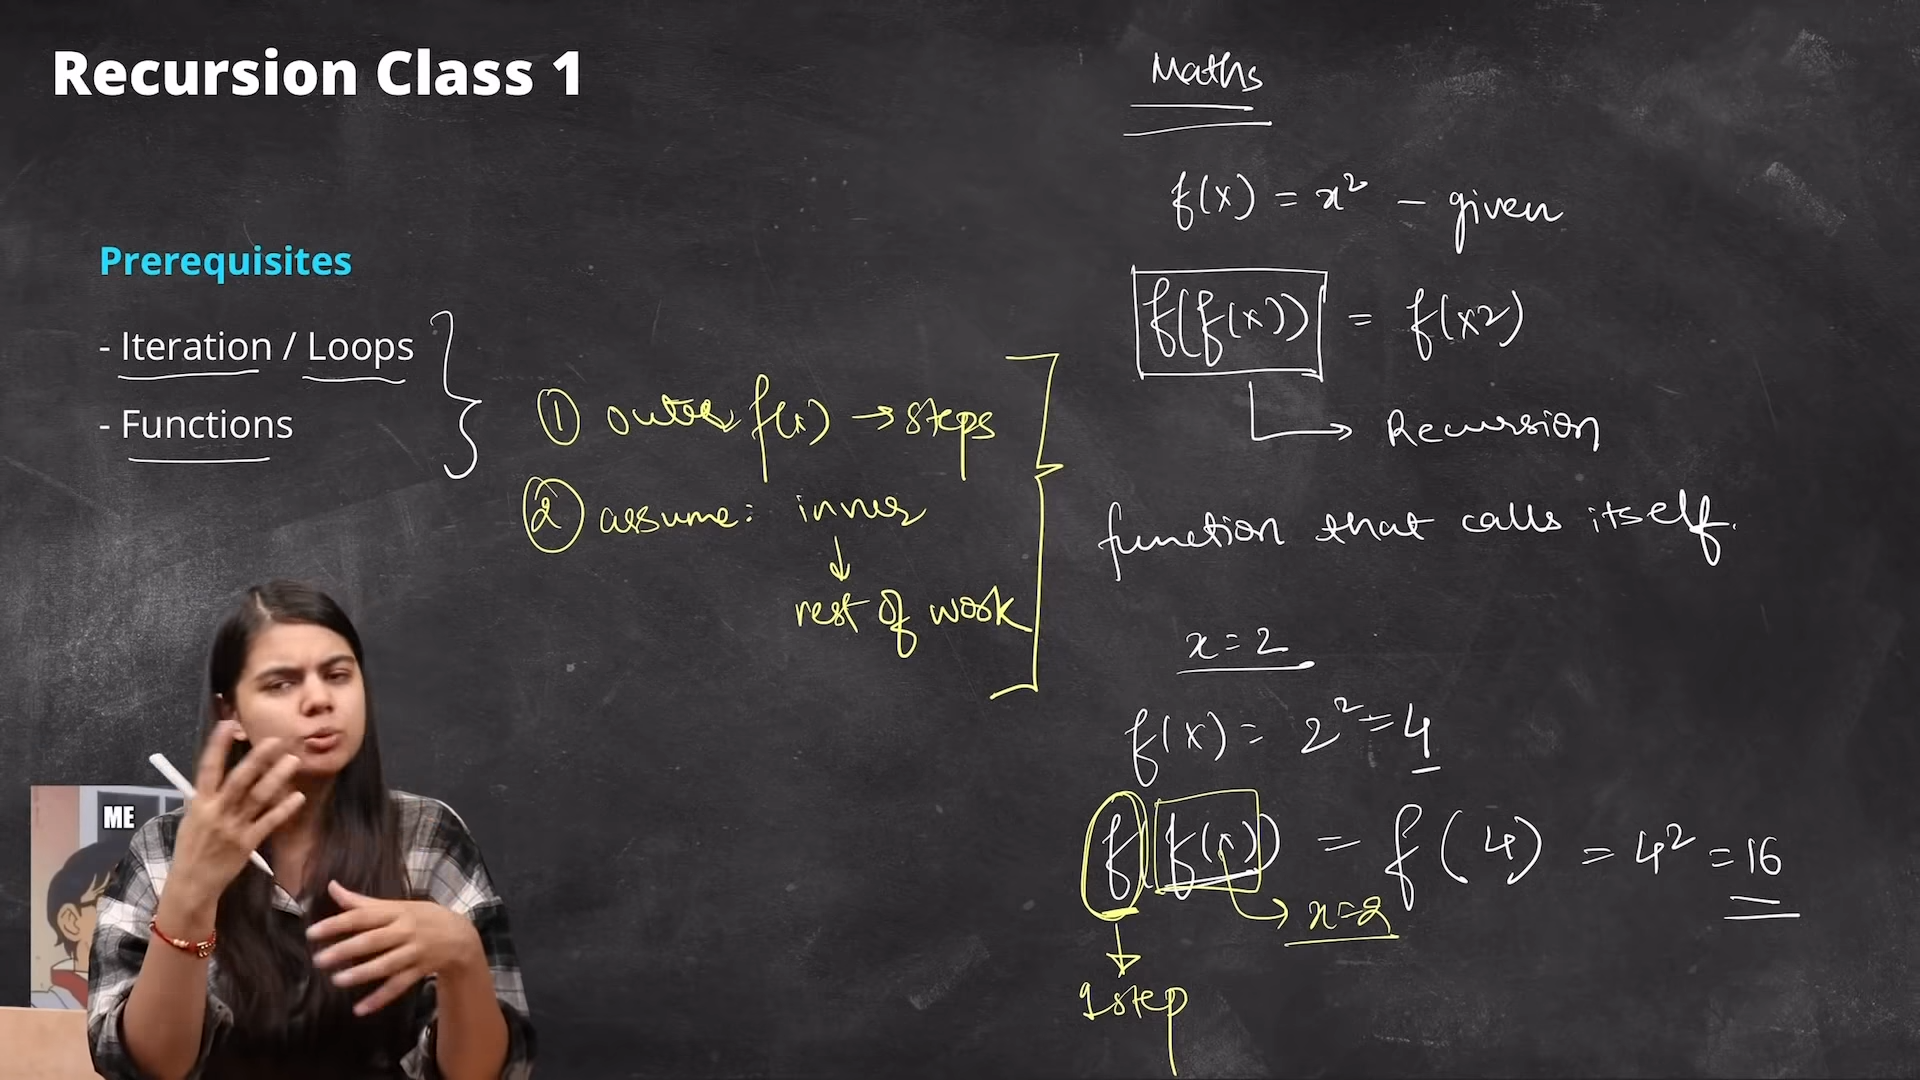 Recursion Class 1
Prerequisites
- Iteration / Loops
- Functions
① outer f(x) → steps
② assume: inner
↓
rest of work
Maths
f(x) = x² – given
f(f(x)) = f(x2)
→ Recursion
function that calls itself.
x = 2
f(x) = 2² = 4
f(f(x)) = f(4) = 4² = 16
→ x=2
↓
1step
ME